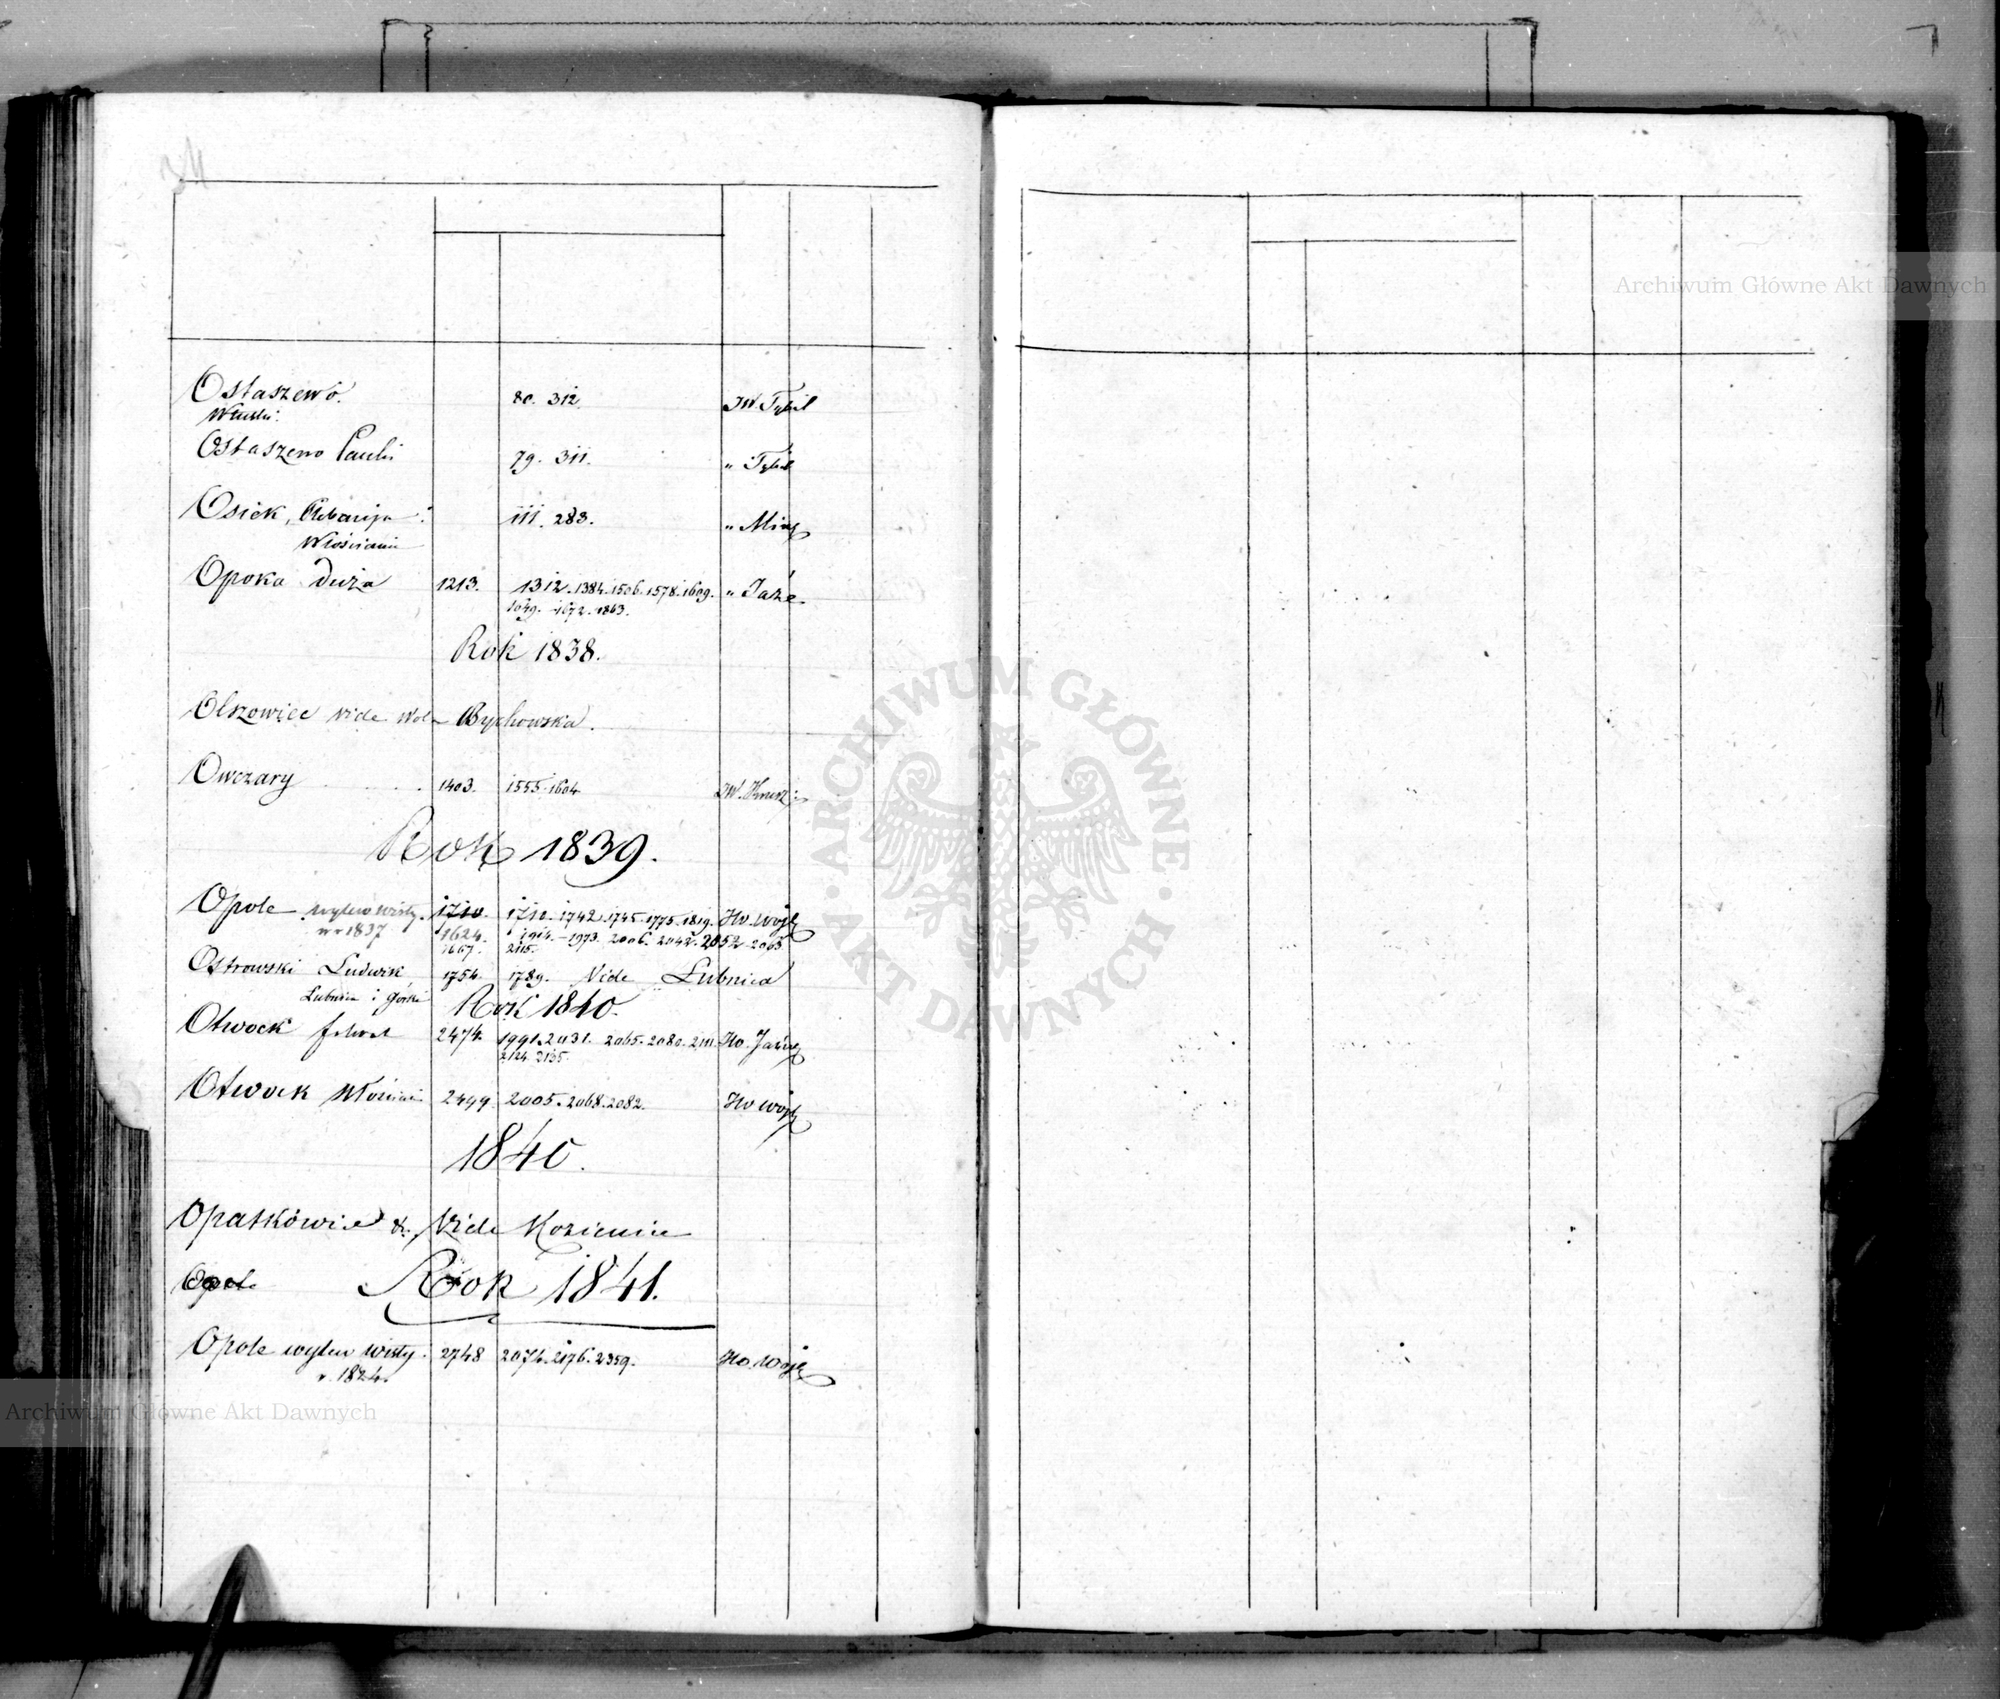 Ostaszewo 80. 312. JW. Tybil
Ostaszewo Pauli 79. 311. " Tybil
Osiek, Plebanija 111. 283. " Ming
Włościanie
Opoka Duża 1213. 1312. 1384. 1506. 1578. 1609. " Jaże
1649. 1672. 1863.
Rok 1838.
Olszowiec vide Wola Bychowska.
Owczary 1403. 1555. 1604
Rok 1839.
Opole wylew Wisły 1710. 1710. 1742. 1745. 1775. 1819.
w r 1837 1624. 1914. 1973. 2006. 2042. 2052. 2063
1667. 2115.
Ostrowski Ludwik 1754. 1789. Vide Łubnica
Łubnica i Górki Rok 1840.
Otwock folwark 2474. 1991. 2031. 2065. 2080. 2111.
2124. 2135.
Otwock Włościanie 2499. 2005. 2068. 2082.
1840.
Opatkowice & Vide Kozienice
Opole Rok 1841.
Opole wylew Wisły 2748 2074. 2176. 2359.
r. 1824.
Archiwum Główne Akt Dawnych
Archiwum Główne Akt Dawnych
ARCHIWUM GŁÓWNE AKT DAWNYCH